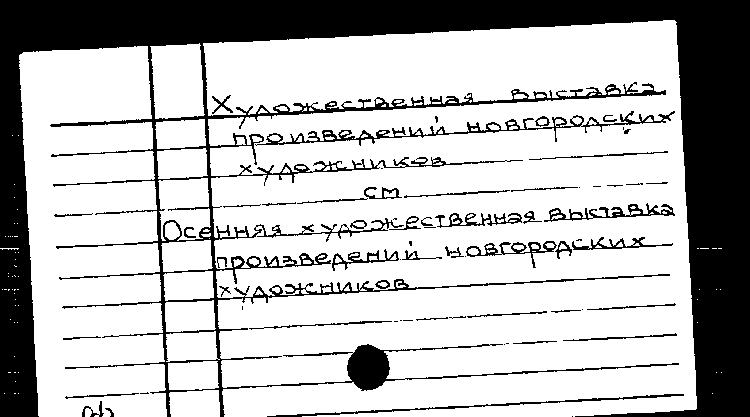 Художественная выставка
произведений новгородских
художников
см.
Осенняя художественная выставка
произведений новгородских
художников